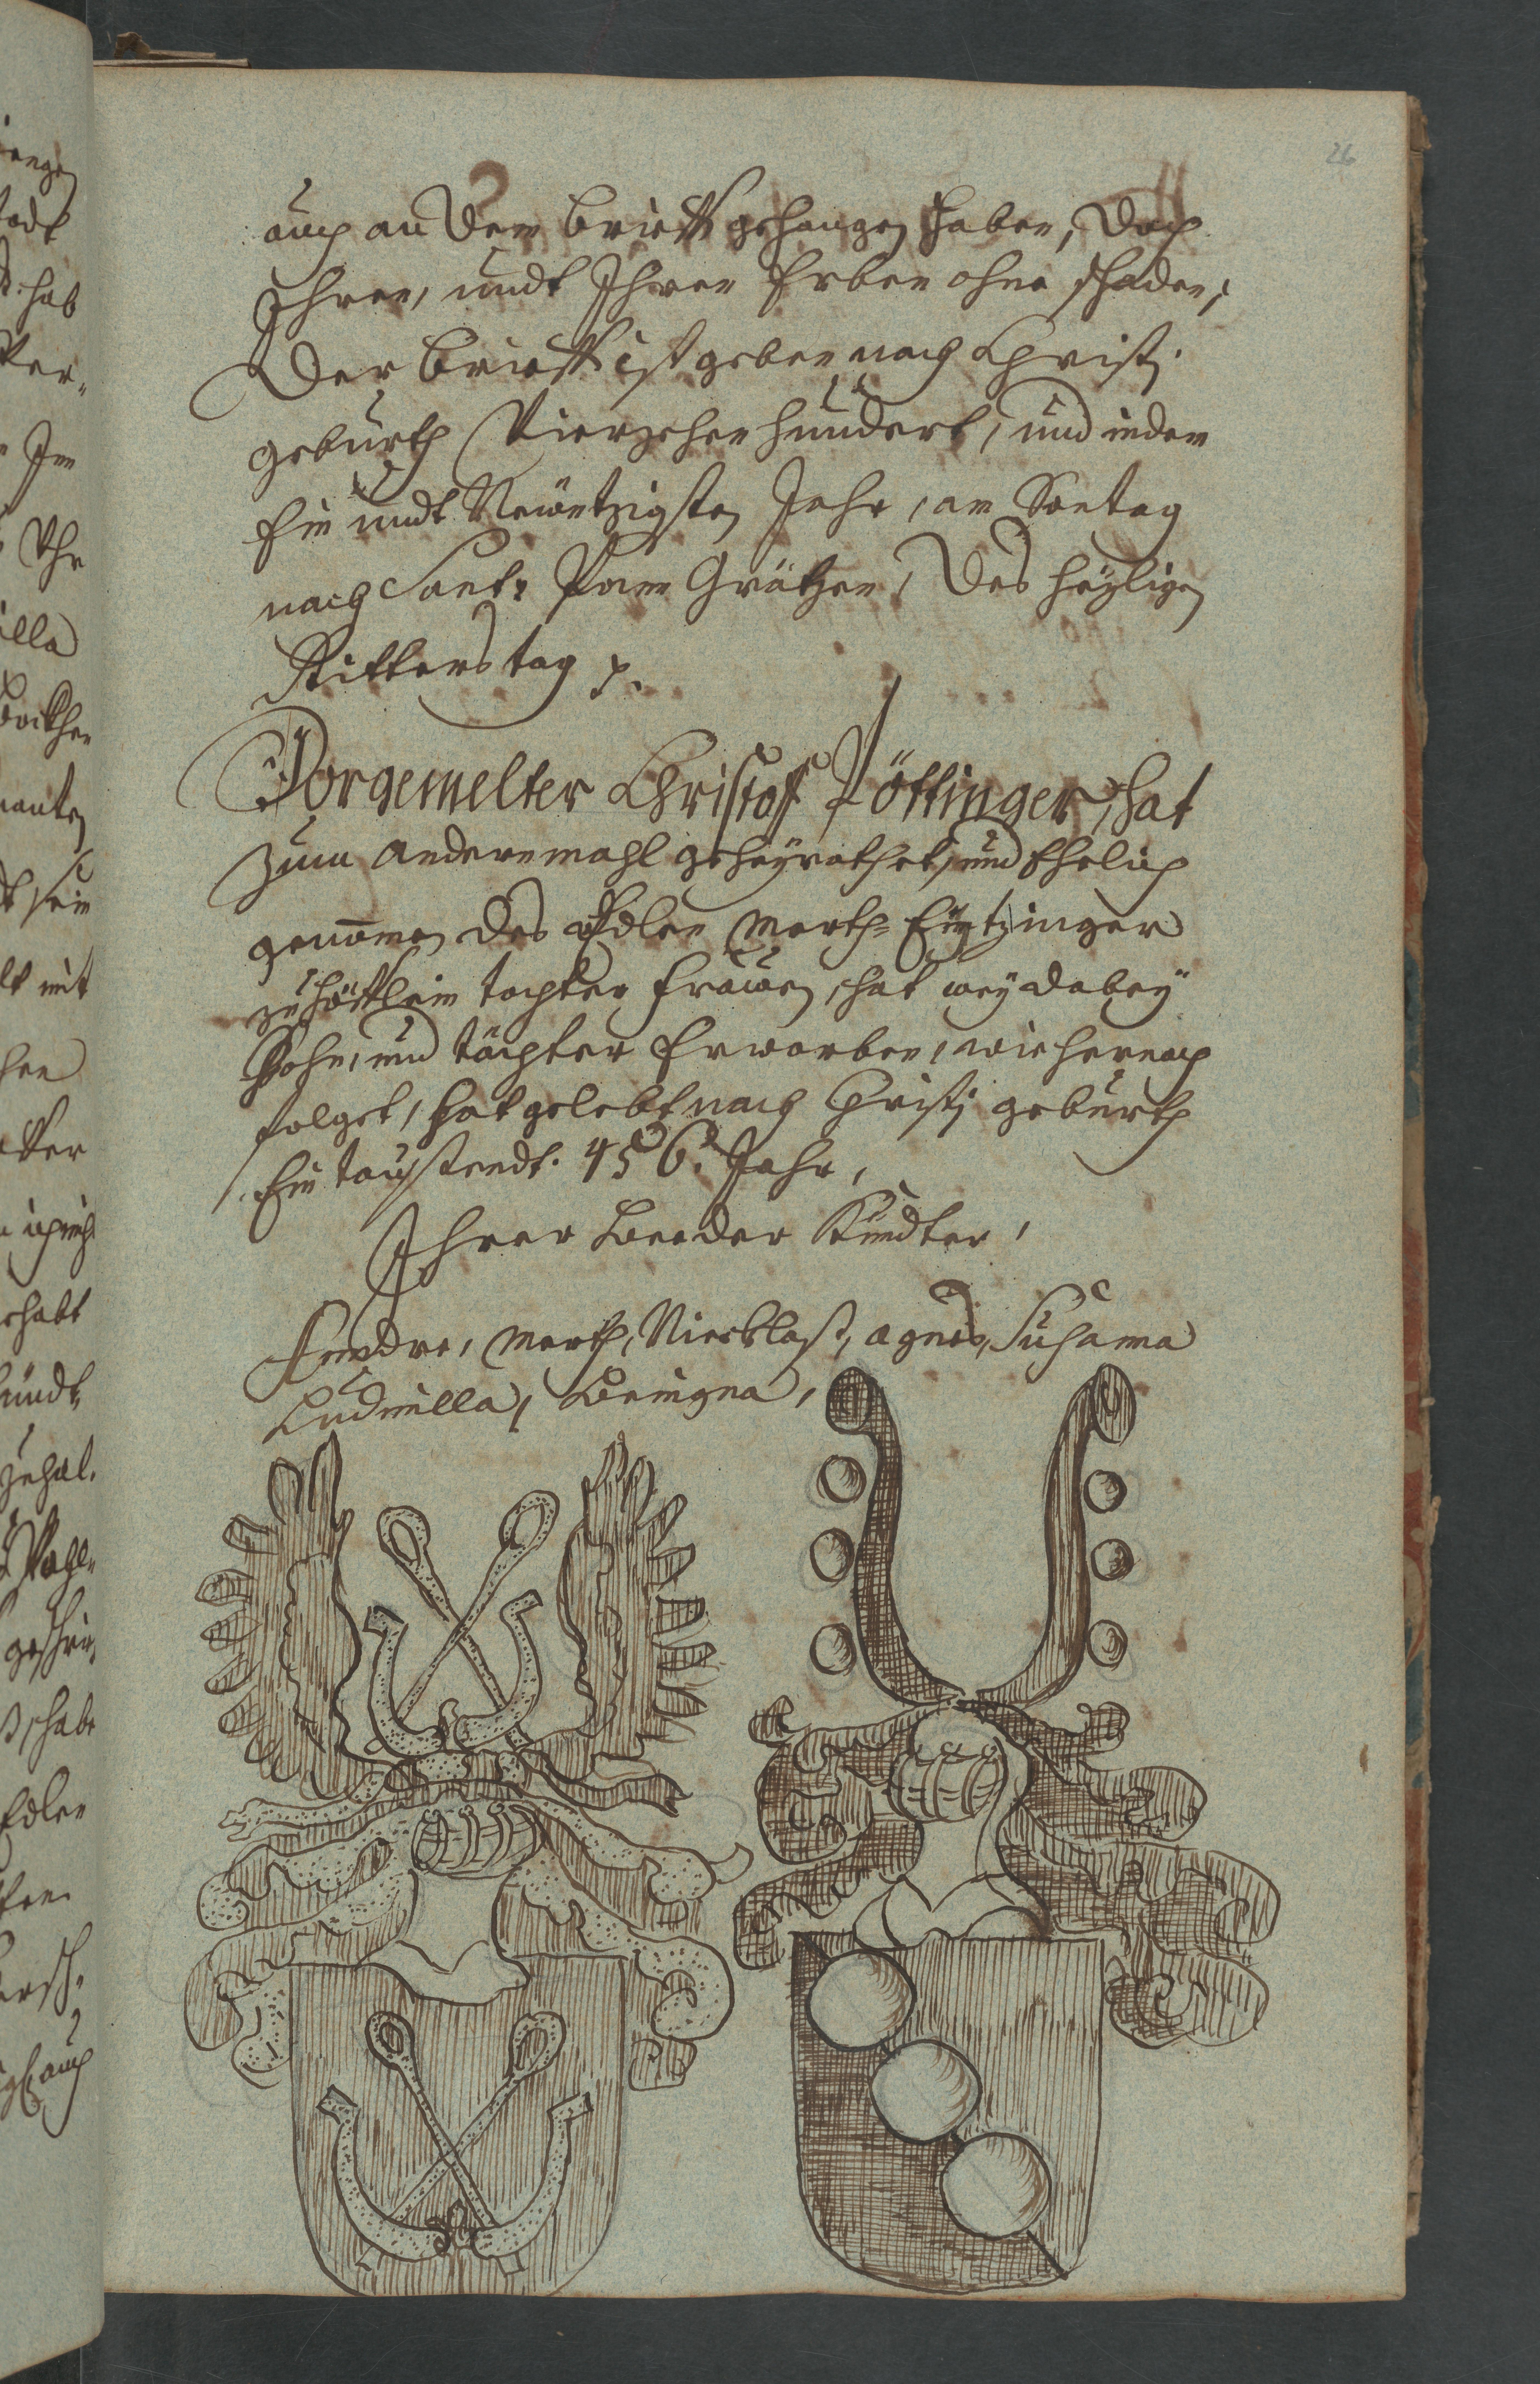 26
auch an dem Brieff gehangen haben, doch
Ihnen, undt Ihren Erben ohne schaden,
Der Brieff ist geben nach Christi
geburth Vierzehen hundert, und in dem
Ein undt Neüntzigsten Jahr, am Sontag
nach Sant: Pan Grätzen, des heyligen
Ritters tag
Vorgemelter Christoff Pöttinger, hat
zum andern mahl geheyrathet, und Ehelich
genomen des Edlen Marth: Eytzinger
tochter Frauen, hat dabey
Sohn, und töchter Erworben, wie hernach
folget, hat gelebt nach Christi geburth
Ein taußendt. 456. Jahr,
Ihrer Beeder Kindter,
Endre, Marth, Nicklaß, Agnes, Susanna
Ludmilla, Benigna,